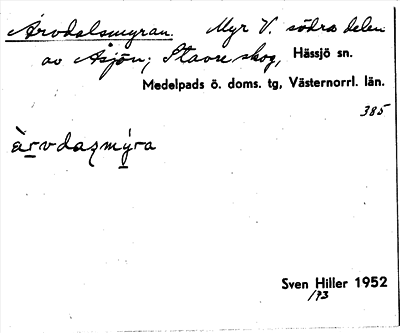 Årvdalsmyran. Myr V. södra delen
av Åsjön; Stavre skog, Hässjö sn.
Medelpads ö. doms. tg, Västernorrl. län.
385
Sven Hiller 1952
173